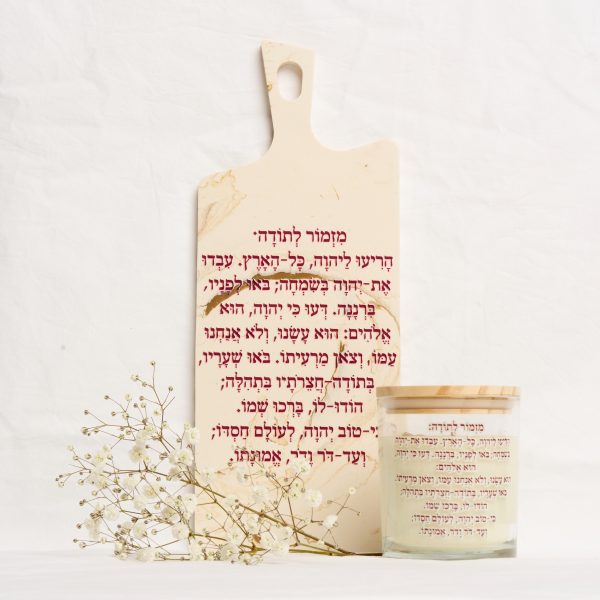 מִזְמוֹר לְתוֹדָה:
הָרִיעוּ לַיהוָה, כָּל-הָאָרֶץ. עִבְדוּ
אֶת-יְהוָה בְּשִׂמְחָה; בֹּאוּ לְפָנָיו,
בִּרְנָנָה. דְּעוּ כִּי יְהוָה, הוּא
אֱלֹהִים: הוּא עָשָׂנוּ, וְלֹא אֲנַחְנוּ
עַמּוֹ, וְצֹאן מַרְעִיתוֹ. בֹּאוּ שְׁעָרָיו,
בְּתוֹדָה-חֲצֵרֹתָיו בִּתְהִלָּה;
הוֹדוּ-לוֹ, בָּרְכוּ שְׁמוֹ.
כִּי-טוֹב יְהוָה, לְעוֹלָם חַסְדּוֹ;
וְעַד-דֹּר וָדֹר, אֱמוּנָתוֹ.
מִזְמוֹר לְתוֹדָה:
הָרִיעוּ לַיהוָה, כָּל-הָאָרֶץ. עִבְדוּ אֶת-יְהוָה
בְּשִׂמְחָה; בֹּאוּ לְפָנָיו, בִּרְנָנָה. דְּעוּ כִּי יְהוָה,
הוּא אֱלֹהִים:
הוּא עָשָׂנוּ, וְלֹא אֲנַחְנוּ עַמּוֹ, וְצֹאן מַרְעִיתוֹ.
בֹּאוּ שְׁעָרָיו, בְּתוֹדָה-חֲצֵרֹתָיו בִּתְהִלָּה;
הוֹדוּ-לוֹ, בָּרְכוּ שְׁמוֹ.
כִּי-טוֹב יְהוָה, לְעוֹלָם חַסְדּוֹ;
וְעַד-דֹּר וָדֹר, אֱמוּנָתוֹ.